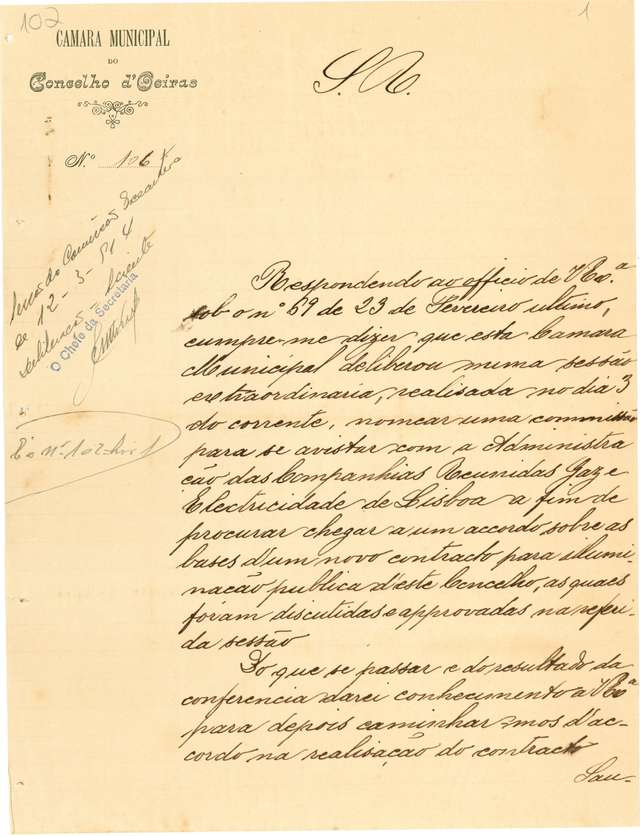 102
1
CAMARA MUNICIPAL
DO
Concelho d'Oeiras
S. R.
N.º 106
Sessão da Comissão Executiva
de 12-3-914
Deliberação - Sciente
O Chefe da Secretaria
É o nº 102-
Respondendo ao officio de V. Ex.ª
sob o nº 59 de 23 de Fevereiro ultimo,
cumpre-me dizer que esta Camara
Municipal deliberou n'uma sessão
extraordinaria, realisada no dia 3
do corrente, nomear uma commissão
para se avistar com a Administra
ção das Companhias Reunidas Gaz e
Electricidade de Lisboa a fim de
procurar chegar a um accordo sobre as
bases d'um novo contracto para illumi
nação publica d'este Concelho, as quaes
foram discutidas e approvadas na referi
da sessão
Do que se passar e do resultado da
conferencia darei conhecimento a V. Ex.ª
para depois caminhar-mos d'ac-
cordo na realisação do contracto
Sau-